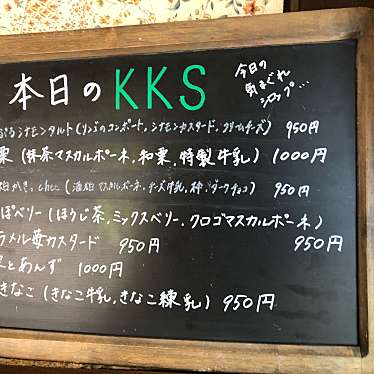 本日のKKS
今日の
気まぐれ
シロップ…
シナモンタルト(りんごのコンポート,シナモンカスタード,クリームチーズ) 950円
栗(抹茶マスカルポーネ,和栗,特製牛乳) 1000円
マスカルポーネ,チーズ牛乳,柿,ダークチョコ) 950円
ぽベリー(ほうじ茶,ミックスベリー,クロゴマスカルポーネ)
950円
ラメル苺カスタード 950円
とあんず 1000円
きなこ(きなこ牛乳,きなこ練乳) 950円